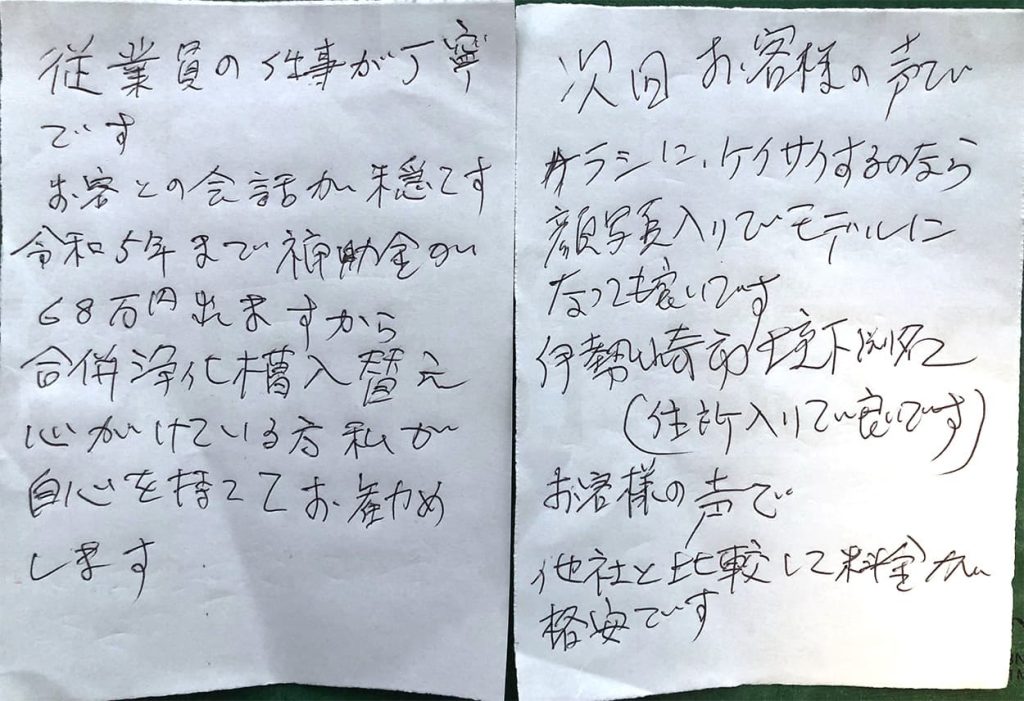 従業員の件事が丁寧
です
お客との会話が穏てす
令和5年まで補助金が
68万円出ますから
合併浄化槽入替え
心がけている方私が
自心を持ってお勧め
します
次回お客様の声で
チラシに、ケイサイするのなら
顔写真入りでモデルに
なっても良いです
伊勢崎市境下渕名
(住所入りで良いです)
お客様の声で
他社と比較して料金が
格安です